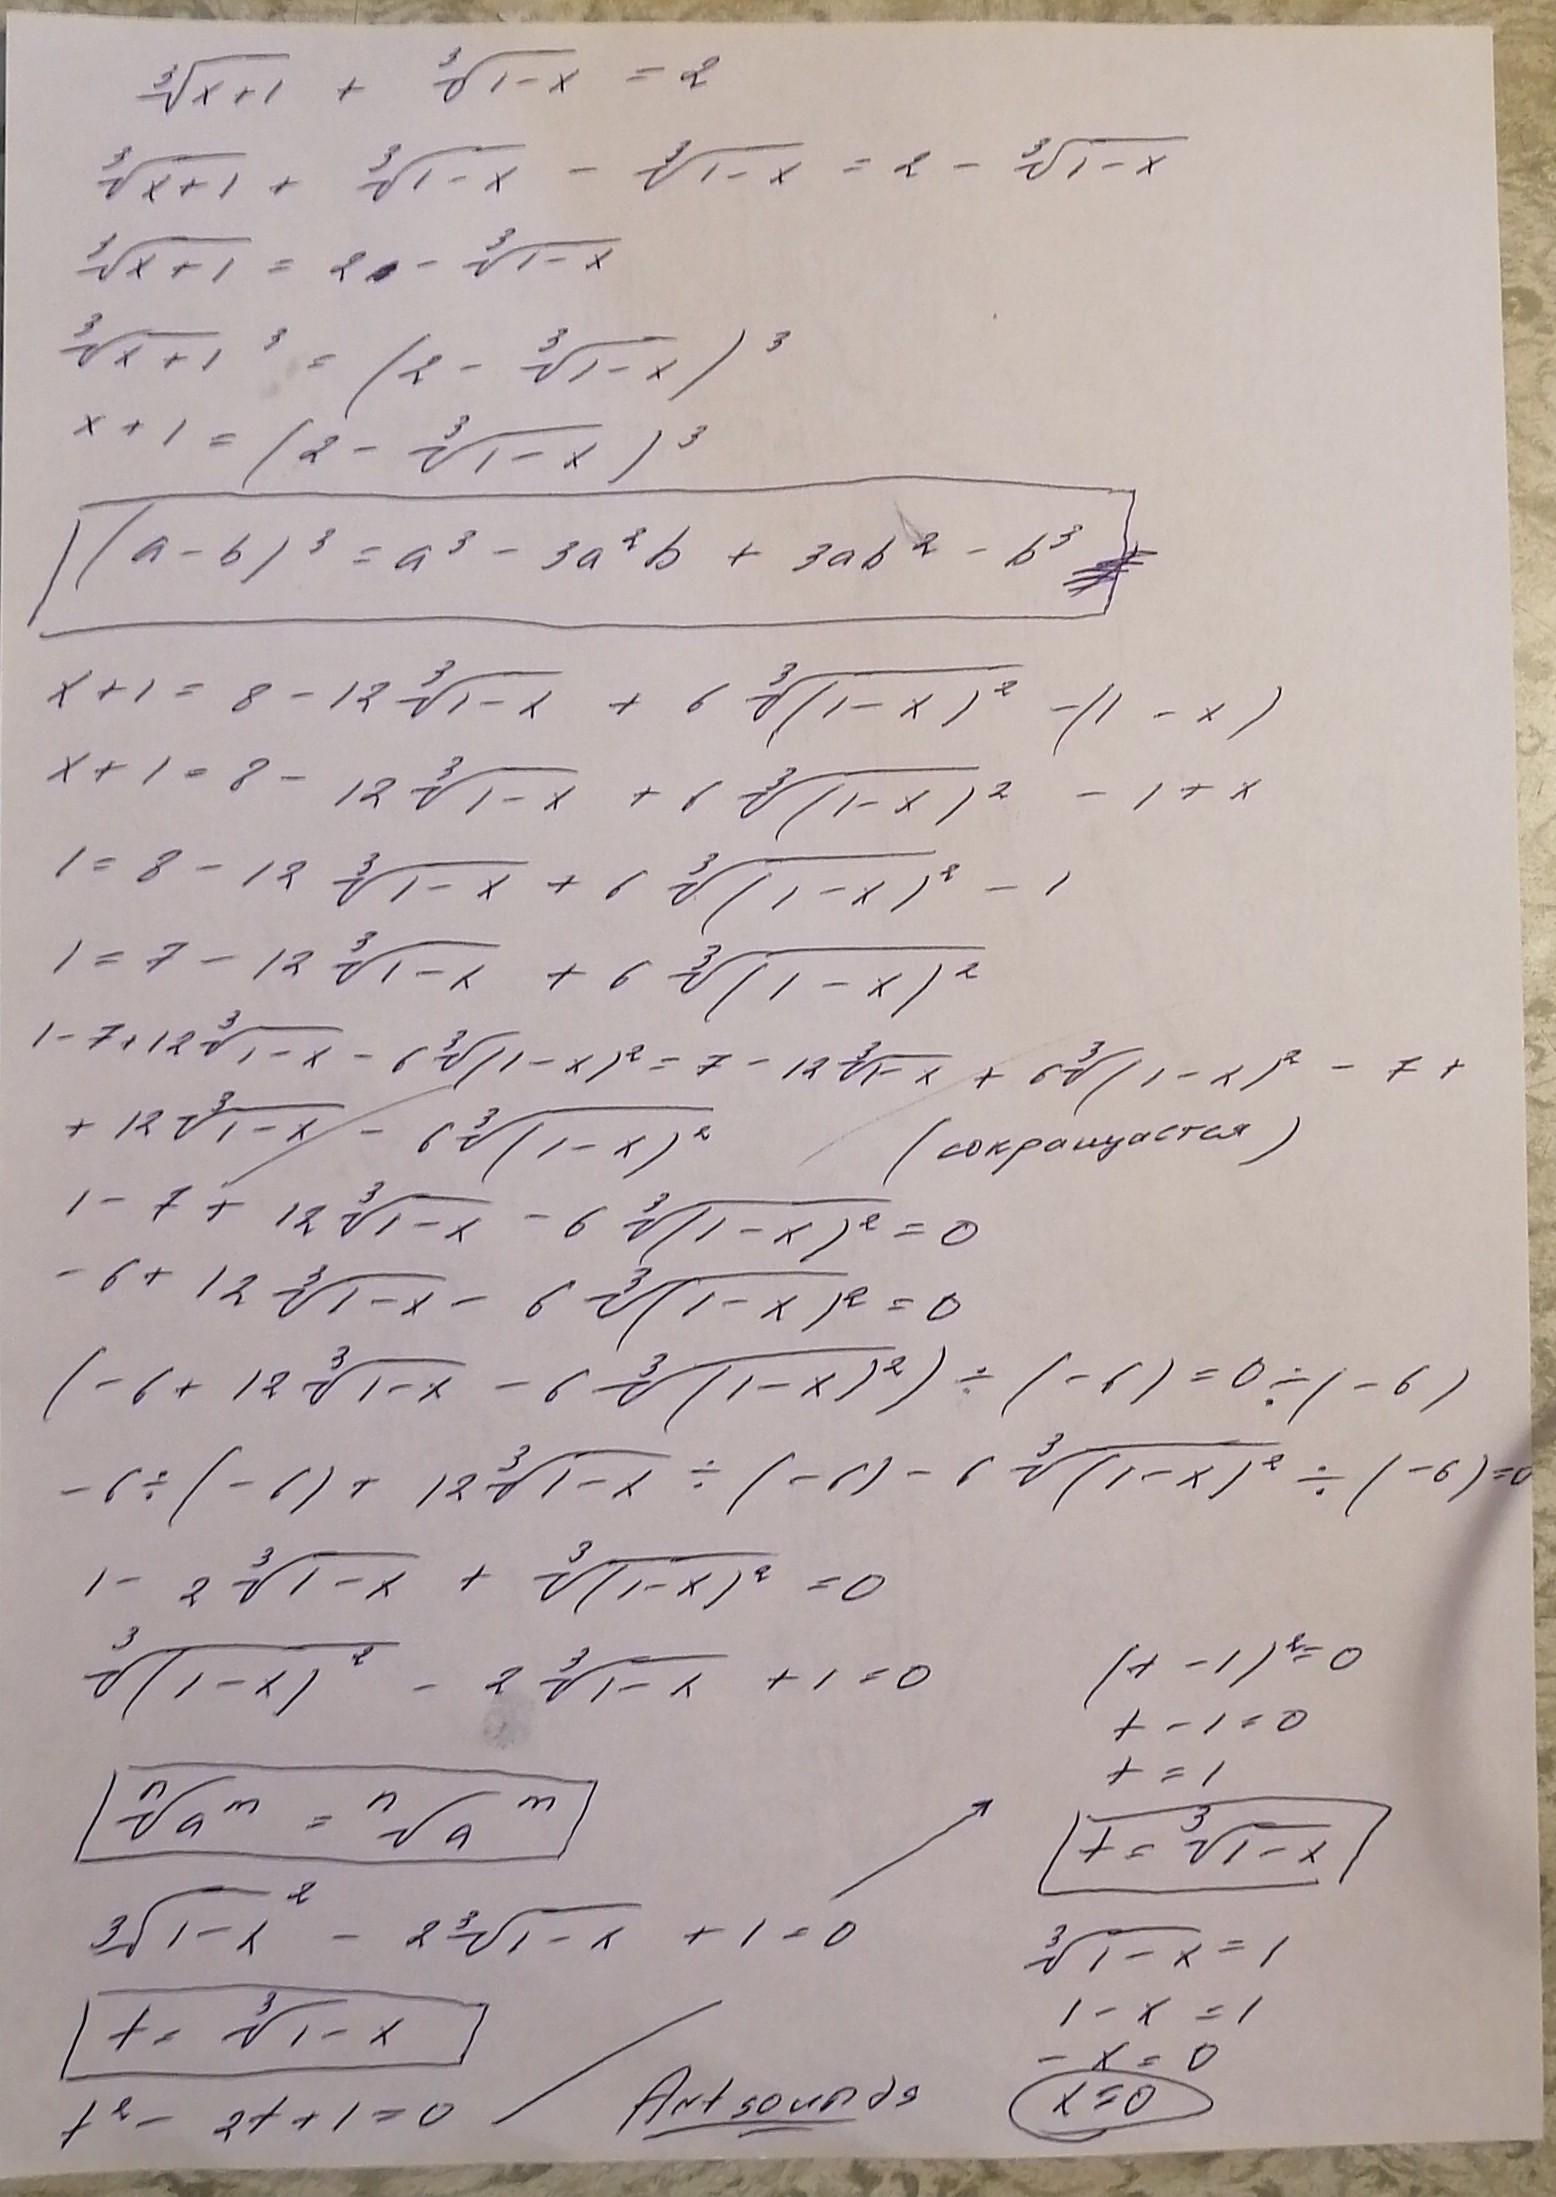 ∛(x+1) + ∛(1-x) = 2
∛(x+1) + ∛(1-x) - ∛(1-x) = 2 - ∛(1-x)
∛(x+1) = 2 - ∛(1-x)
∛(x+1)³ = (2 - ∛(1-x))³
x+1 = (2 - ∛(1-x))³
(a-b)³ = a³ - 3a²b + 3ab² - b³
x+1 = 8 - 12∛(1-x) + 6∛((1-x)²) - (1-x)
x+1 = 8 - 12∛(1-x) + 6∛((1-x)²) - 1 + x
1 = 8 - 12∛(1-x) + 6∛((1-x)²) - 1
1 = 7 - 12∛(1-x) + 6∛((1-x)²)
1-7+12∛(1-x) - 6∛((1-x)²) = 7 - 12∛(1-x) + 6∛((1-x)²) - 7 +
+ 12∛(1-x) - 6∛((1-x)²) (сокращается)
1 - 7 + 12∛(1-x) - 6∛((1-x)²) = 0
-6 + 12∛(1-x) - 6∛((1-x)²) = 0
(-6 + 12∛(1-x) - 6∛((1-x)²)) ÷ (-6) = 0 ÷ (-6)
-6 ÷ (-6) + 12∛(1-x) ÷ (-6) - 6∛((1-x)²) ÷ (-6) = 0
1 - 2∛(1-x) + ∛((1-x)²) = 0
∛((1-x)²) - 2∛(1-x) + 1 = 0
ⁿ√(aᵐ) = ⁿ√a ᵐ
∛(1-x)² - 2∛(1-x) + 1 = 0
t = ∛(1-x)
t² - 2t + 1 = 0
(t - 1)² = 0
t - 1 = 0
t = 1
t = ∛(1-x)
∛(1-x) = 1
1 - x = 1
-x = 0
x = 0
Artsounds